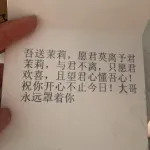 吾送茉莉，愿君莫离予君
茉莉，与君不离，只愿君
欢喜，且望君心懂吾心！
祝你开心不止今日！大哥
永远罩着你